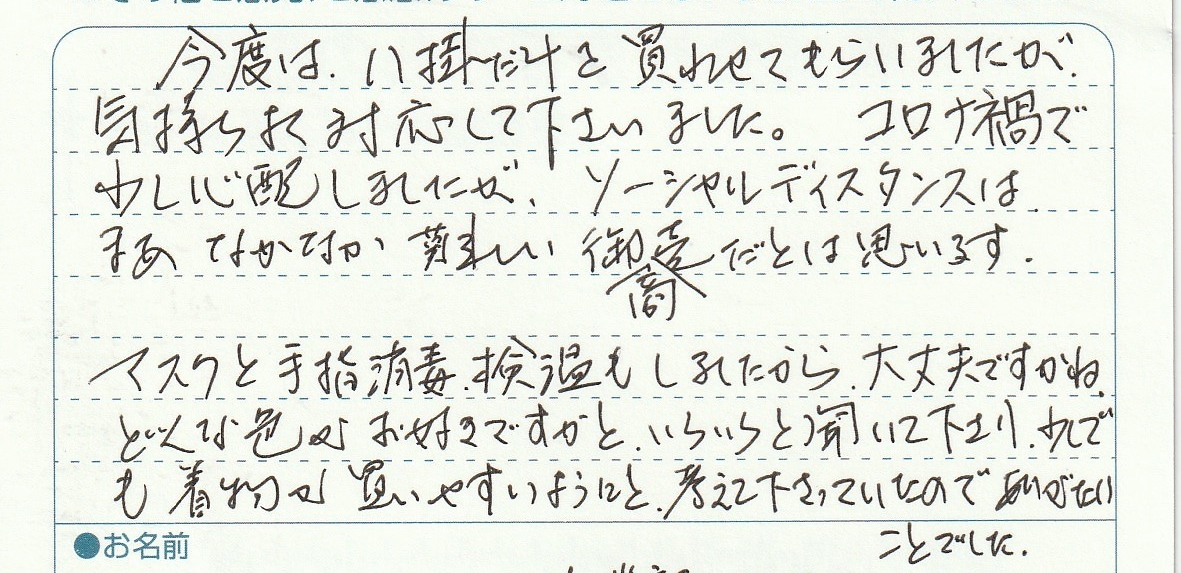 今度は、八掛だけを買わせてもらいましたが、
気持ちよく対応して下さいました。 コロナ禍で
少し心配しましたが、ソーシャルディスタンスは、
まあ なかなか 難しい 御商売だとは思います。
マスクと手指消毒、検温もしましたから、大丈夫ですかね、
どんな色がお好きですかと、いろいろと聞いて下さり、少しで
も着物が買いやすいようにと、考えて下さっていたのでありがたい
ことでした。
●お名前